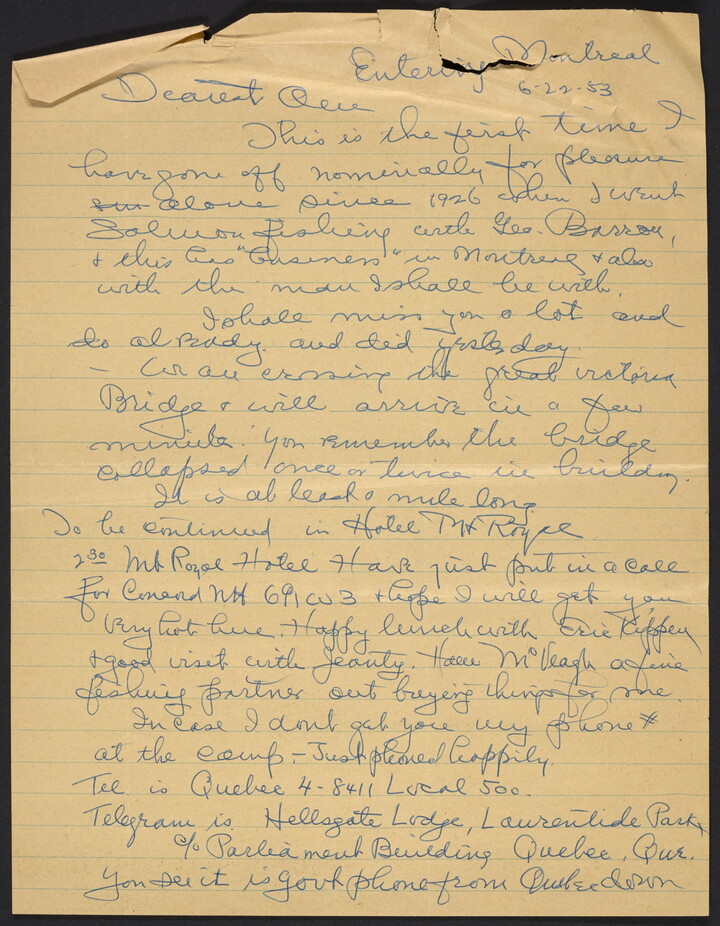 Entering Montreal
6-22-53
Dearest
This is the first time I
have gone off nominally for pleasure
alone since 1926 when I went
Salmon fishing with Geo. Barron,
& this has "business" in Montreal & also
with the man I shall be with.
I shall miss you a lot and
do already and did yesterday.
- We are crossing the great victoria
Bridge & will arrive in a few
minutes. You remember the bridge
collapsed once or twice in building.
It is at least a mile long
To be continued in Hotel Mt Royal
2 30 Mt Royal Hotel Have just put in a call
for Concord NH 691 W 3 & hope I will get you
Very hot here. Happy lunch with Eric Kippen
& good visit with Jeanty. Have McVeagh a fine
fishing partner out buying things for me.
In case I dont get you my phone #
at the camp - Just phoned happily.
Tel is Quebec 4-8411 Local 500.
Telegram is Hellsgate Lodge, Laurentide Park,
c/o Parliament Building Quebec, Que.
You see it is govt phone from Quebec down